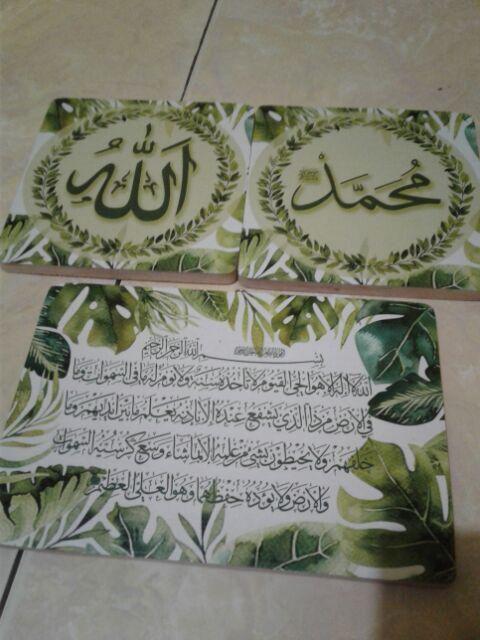 الله
محمد
بسم الله الرحمن الرحيم
الله لا إله إلا هو الحي القيوم لا تأخذه سنة ولا نوم له ما في السموات وما
في الأرض من ذا الذي يشفع عنده إلا بإذنه يعلم ما بين أيديهم وما
خلفهم ولا يحيطون بشيء من علمه إلا بما شاء وسع كرسيه السموات
والأرض ولا يؤوده حفظهما وهو العلي العظيم